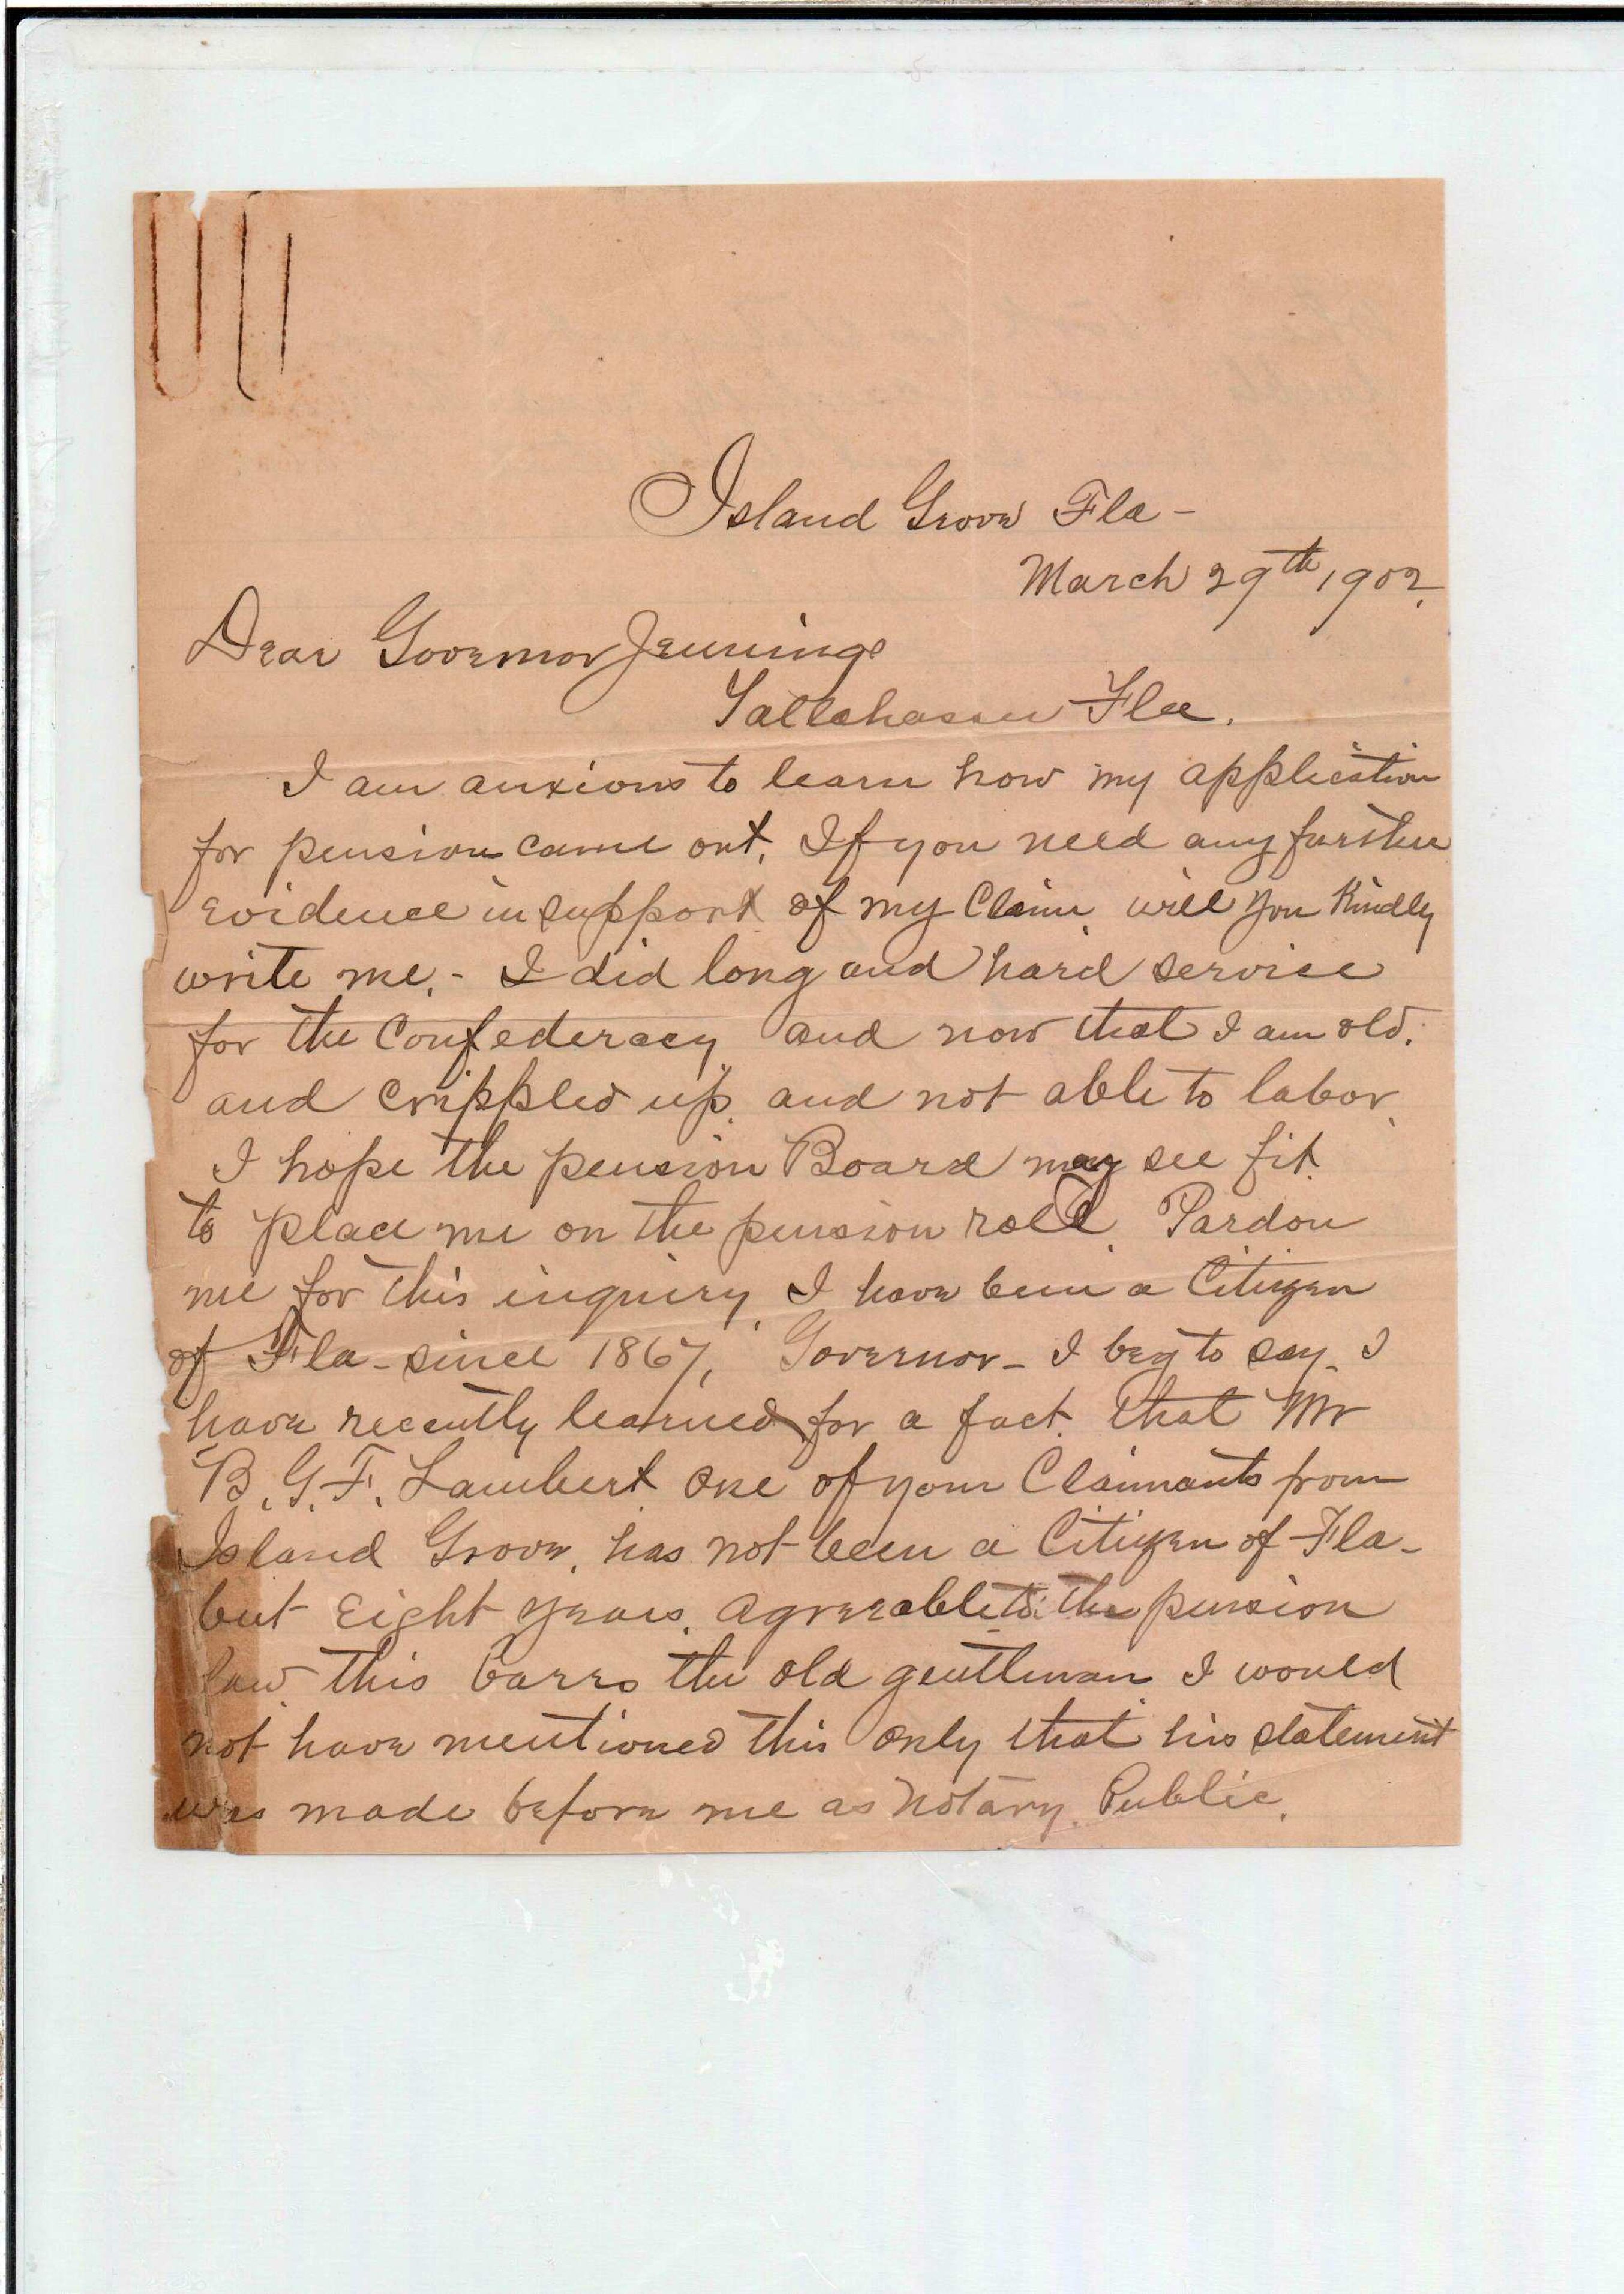 Island Grove Fla -
March 29th 1902.
Dear Governor Jennings
Tallahassee Fla.
I am anxious to learn how my application
for pension came out. If you need any further
evidence in support of my Claim, will you Kindly
write me. - I did long and hard service
for the Confederacy and now that I am old.
and crippled up. and not able to labor.
I hope the pension Board may see fit.
to place me on the pension roll. Pardon
me for this inquiry. I have been a Citizen
of Fla - since 1867. Governor - I beg to say - I
have recently learned for a fact. that Mr
B. G. F. Lambert. One of your Claimants from
Island Grove, has not been a Citizen of Fla -
but Eight years. agreeable to the pension
law. this barrs the old gentleman I would
not have mentioned this only that his statement
was made before me as Notary. Public.